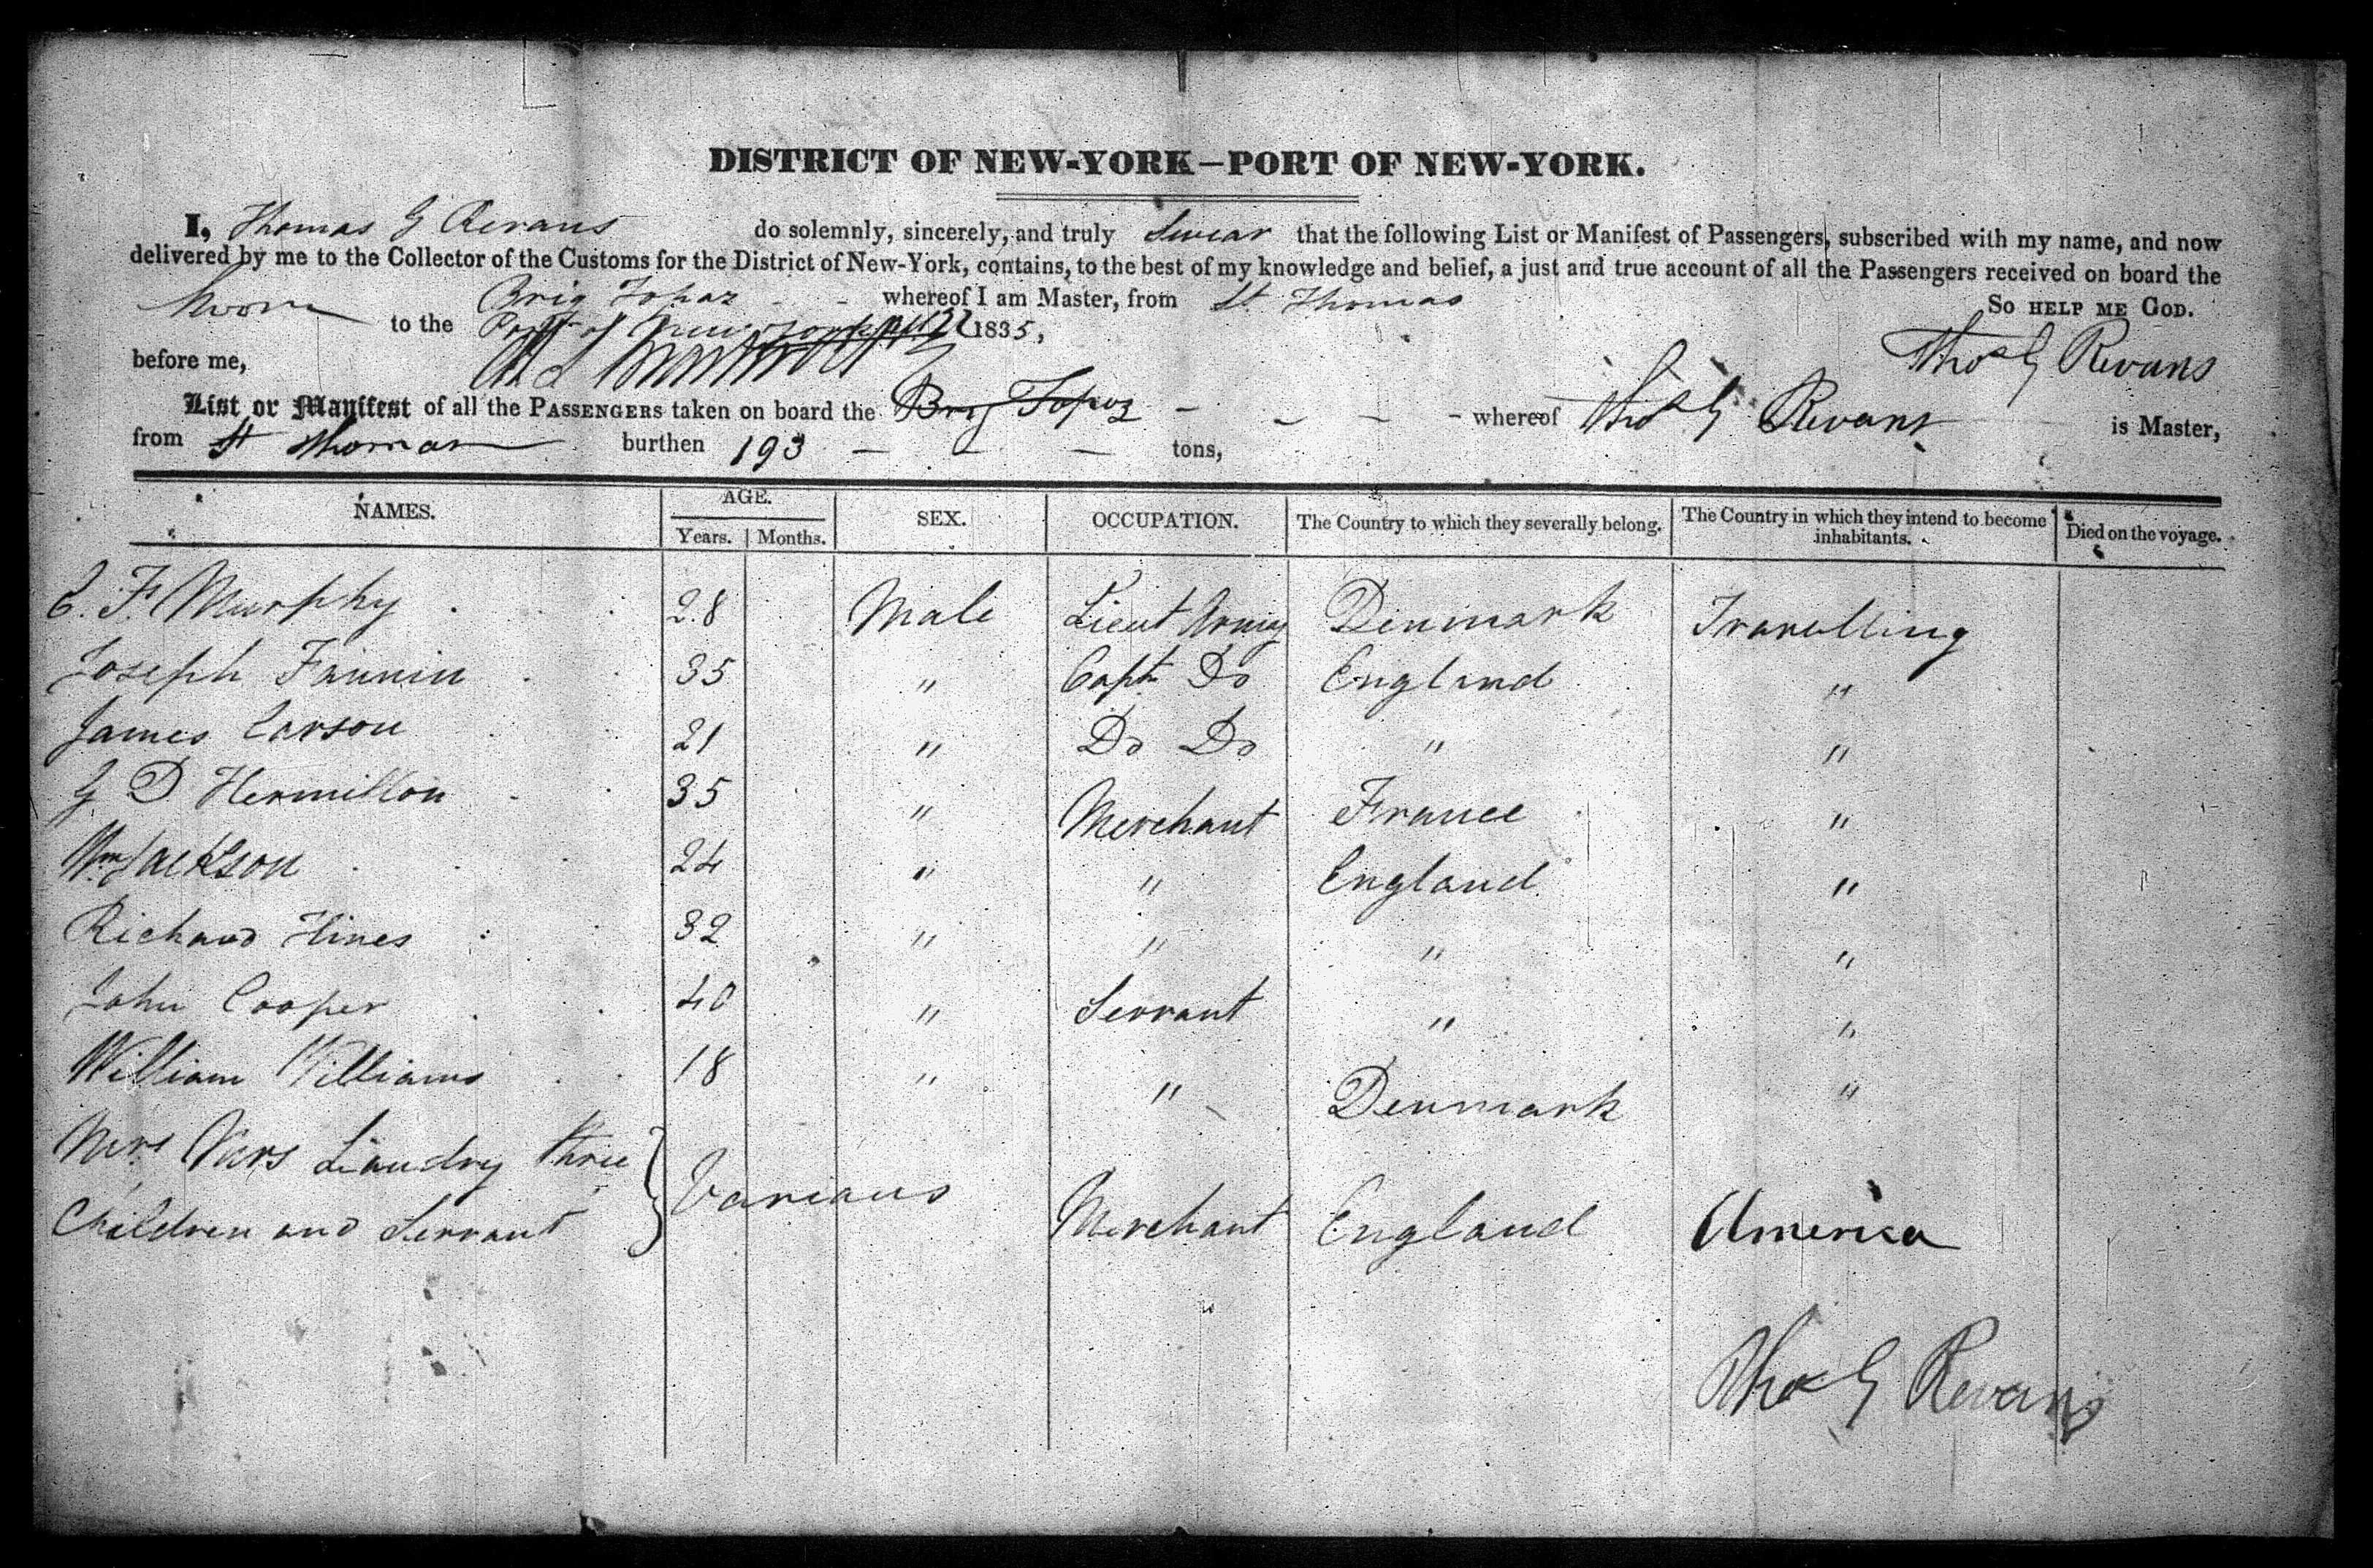 DISTRICT OF NEW-YORK—PORT OF NEW-YORK.
I, Thomas G Revans do solemnly, sincerely, and truly Swear that the following List or Manifest of Passengers, subscribed with my name, and now
delivered by me to the Collector of the Customs for the District of New-York, contains, to the best of my knowledge and belief, a just and true account of all the Passengers received on board the
Brig Topaz - - whereof I am Master, from St. Thomas
Sworn to the Port of New York 1835, So HELP ME GOD.
before me, Thos G Revans
List or Manifest of all the PASSENGERS taken on board the Brig Topaz - - - - whereof Thos G Revans is Master,
from St Thomas burthen 193 — — — tons,
NAMES. AGE. SEX. OCCUPATION. The Country to which they severally belong. The Country in which they intend to become inhabitants. Died on the voyage.
Years. Months.
E. F. Murphy 28 Male Lieut Army Denmark Travelling
Joseph Fannin 35 " Capt Do England "
James Carson 21 " Do Do " "
G D Hermillon 35 " Merchant France "
Wm Jackson 24 " " England "
Richard Hines 32 " " " "
John Cooper 40 " Servant " "
William Williams 18 " " Denmark "
Landry three
Children and Servant } Various Merchant England America
Thos G Revans